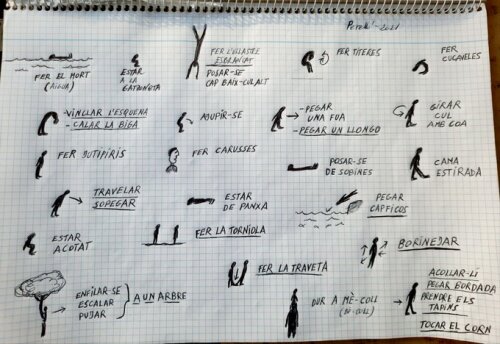 Perelló - 2021
FER EL MORT
(AIGUA)
ESTAR
A LA
GATZONETA
FER L'ULLASTRE
ESBRANCAT
POSAR-SE
CAP BAIX-CULALT
FER TITERES
FER
CUCAVELES
-VINCLAR L'ESQUENA
-CALAR LA BIGA
AJUPIR-SE
-PEGAR
UNA FUA
-PEGAR UN LLONGO
GIRAR
CUL
AMB COA
FER BOTIPIRIS
FER CARUSSES
POSAR-SE
DE SOBINES
CAMA
ESTIRADA
TRAVELAR
SOPEGAR
ESTAR
DE PANXA
PEGAR
CAPFICOS
ESTAR
ACOTAT
FER LA TORNIOLA
BORINEJAR
ENFILAR-SE
ESCALAR
PUJAR
A UN ARBRE
FER LA TRAVETA
DUR A MÈ-COLL
ACOLLAR-LI
PEGAR BORDADA
PRENDRE ELS
TAPINS
TOCAR EL CORN